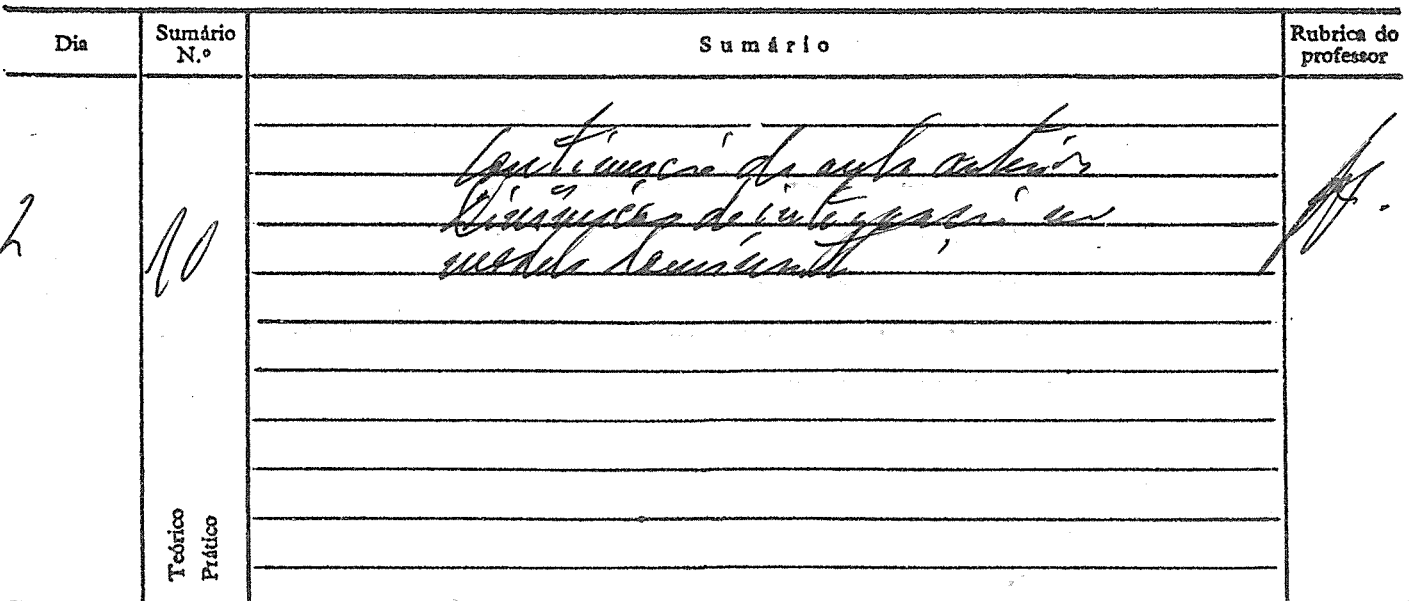 Dia
Sumário N.º
Sumário
Rubrica do professor
2
10
Continuação da aula anterior
Dinâmicas de integração no
modelo dominante
Teórico
Prático